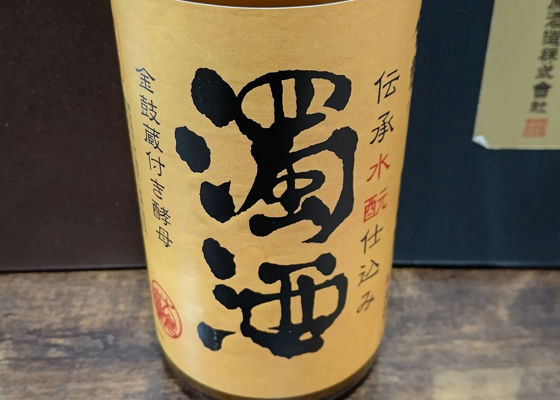 伝承水酛仕込み
濁酒
金鼓蔵付き酵母
酒造株式會社